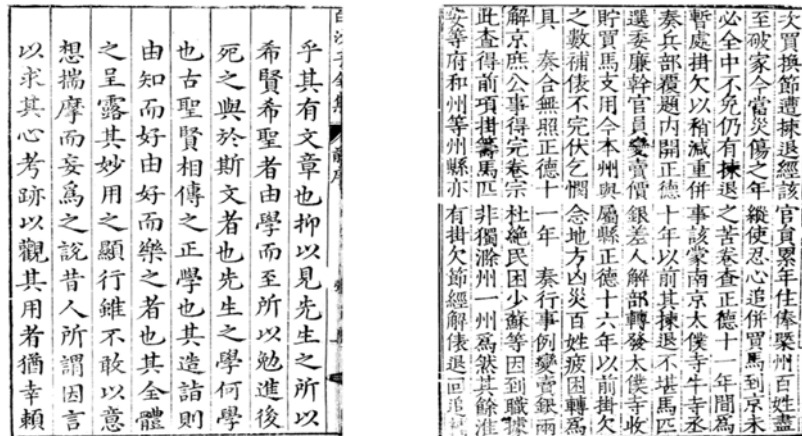 次買換節遭揀退經該官員累年住俸槩州百姓盡
至破家今當災傷之年縱使忍心追併買馬到京未
必全中不免仍有揀退之苦卷查正德十一年間爲
暫處掛欠以稍減重併事該蒙南京太僕寺牛寺丞
奏兵部覆題内開正德十年以前其揀退不堪馬匹
選委廉幹官員變賣價銀差人解部轉發太僕寺收
貯買馬支用今本州與屬縣正德十六年以前掛欠
之數補俵不完伏乞憫念地方凶災百姓疲困轉爲
具 奏合無照正德十一年 奏行事例變賣銀兩
解京庶公事得完卷宗杜絶民困少蘇等因到職據
此查得前項掛籌馬匹非獨滁州一州爲然其餘淮
安等府和州等州縣亦有掛欠節經解俵退回追
白沙子全集
乎其有文章也抑以見先生之所以
希賢希聖者由學而至所以勉進後
死之與於斯文者也先生之學何學
也古聖賢相傳之正學也其造詣則
由知而好由好而樂之者也其全體
之呈露其妙用之顯行雖不敢以意
想揣摩而妄爲之說昔人所謂因言
以求其心考跡以觀其用者猶幸賴